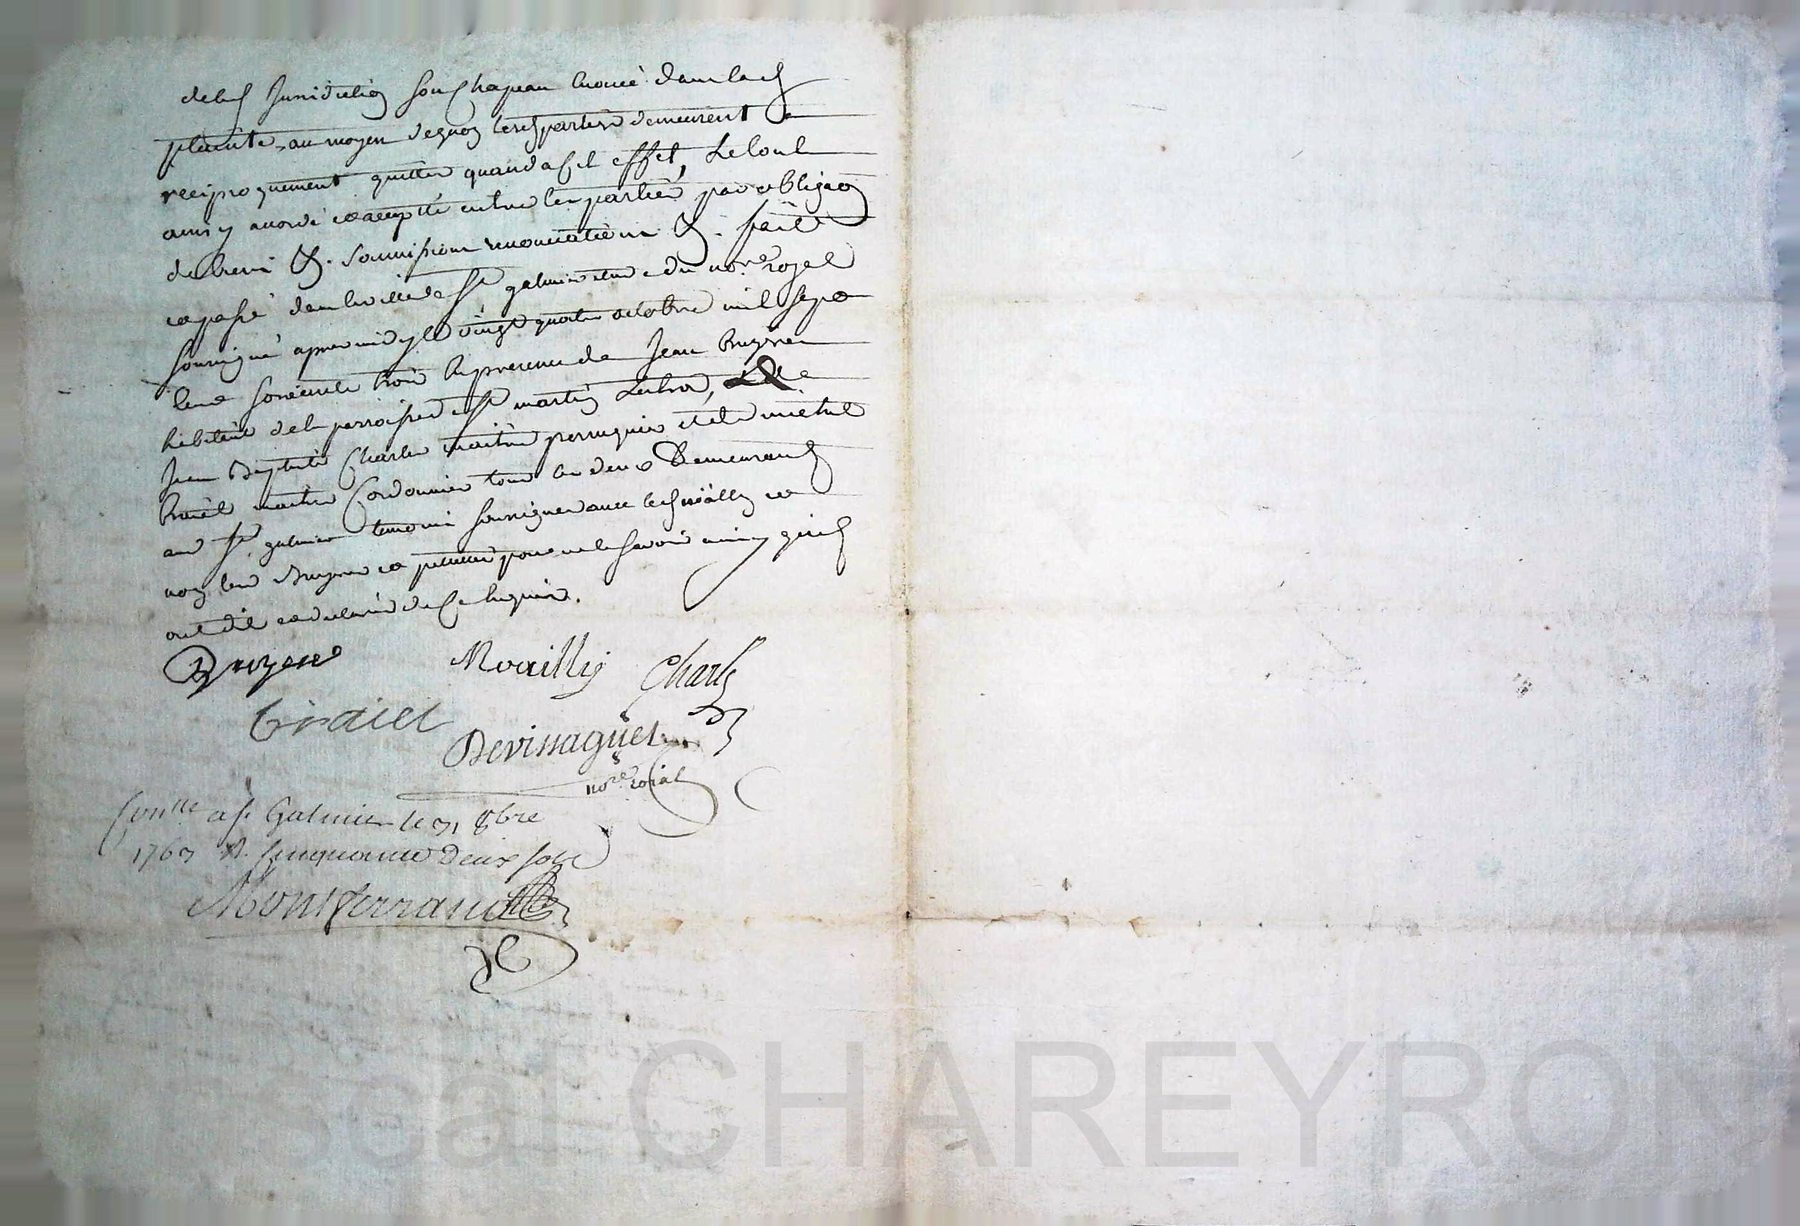 deld Juridiction son chapeau trouvé dans lad
plainte, au moyen dequoy lesd parties demeurent
reciproquement quittes quand a cet effet, Le tout
ainsy accordé et accepté entre les parties par obligaon
de biens &. soumissions renonciations &. fait
et passé dans la ville de St galmier etude du nore royal
soussigné apres midy le vingt quatre octobre mil sept
cent soixante trois en presence de Jean Bruyere
habitant de la parroisse de St martin Lestra,
Jean Baptiste Charles maitre perruquier et de michel
Citail maitre Cordonnier tous les deux Demeurand
aud St galmier temoins soussignes avec led Noailly et
non led Bruyere et pour ne le savoir ainsy qu'ils
ont dit et declaré de ce enquis.
Bruyere Noailly Charles
Devissaguet
nore roial
Conlle a st Galmier le 31 8bre
1763 R. cinquante Deux sols
Montferrand
Pascal CHAREYRON